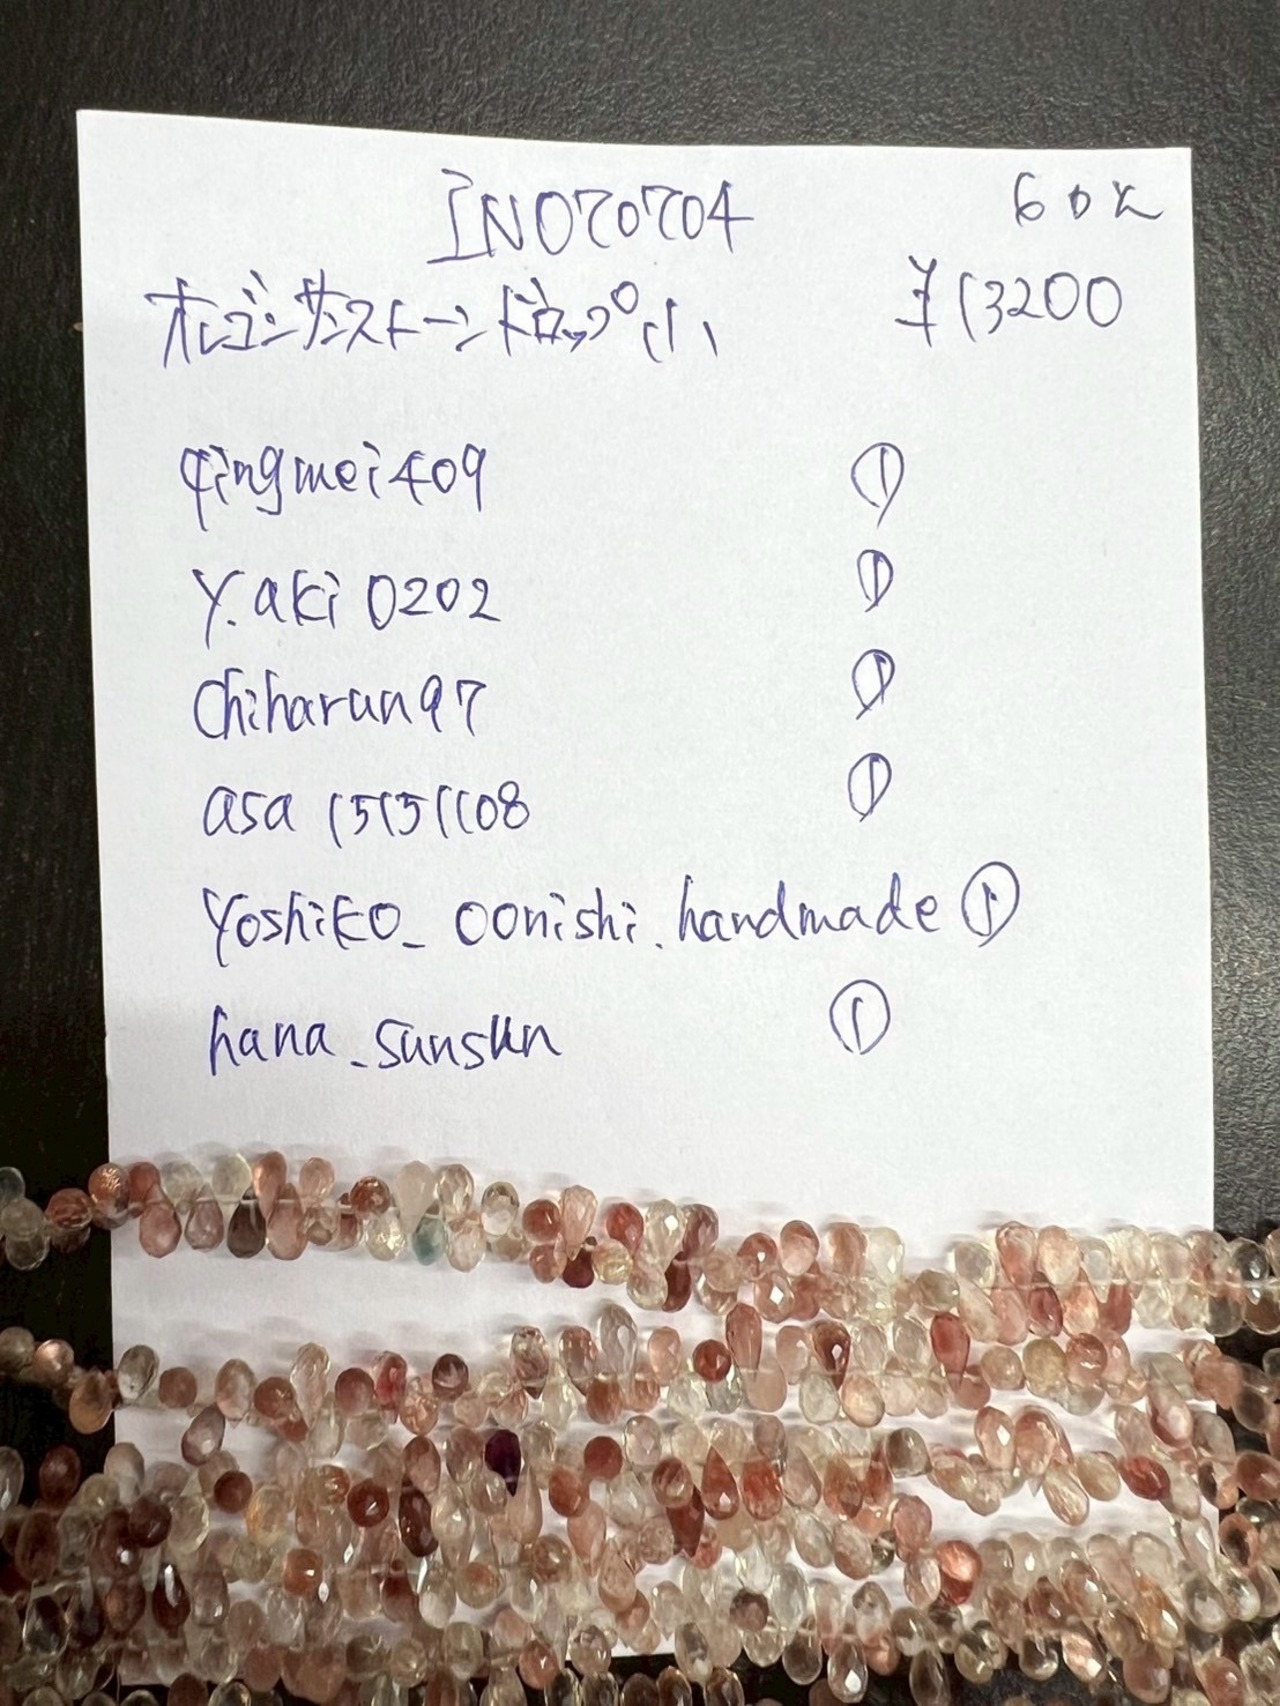 IN070704 60%
オレゴンサンストーンドロップ小 ¥13200
qingmei409 ①
y.aki0202 ①
chiharun97 ①
asa15151108 ①
yoshiko_oonishi.handmade ①
hana_sunsun ①